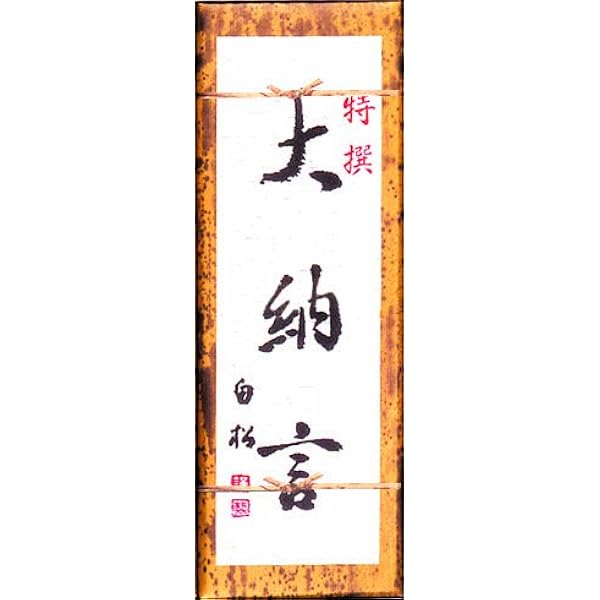 特撰
大納言
白松